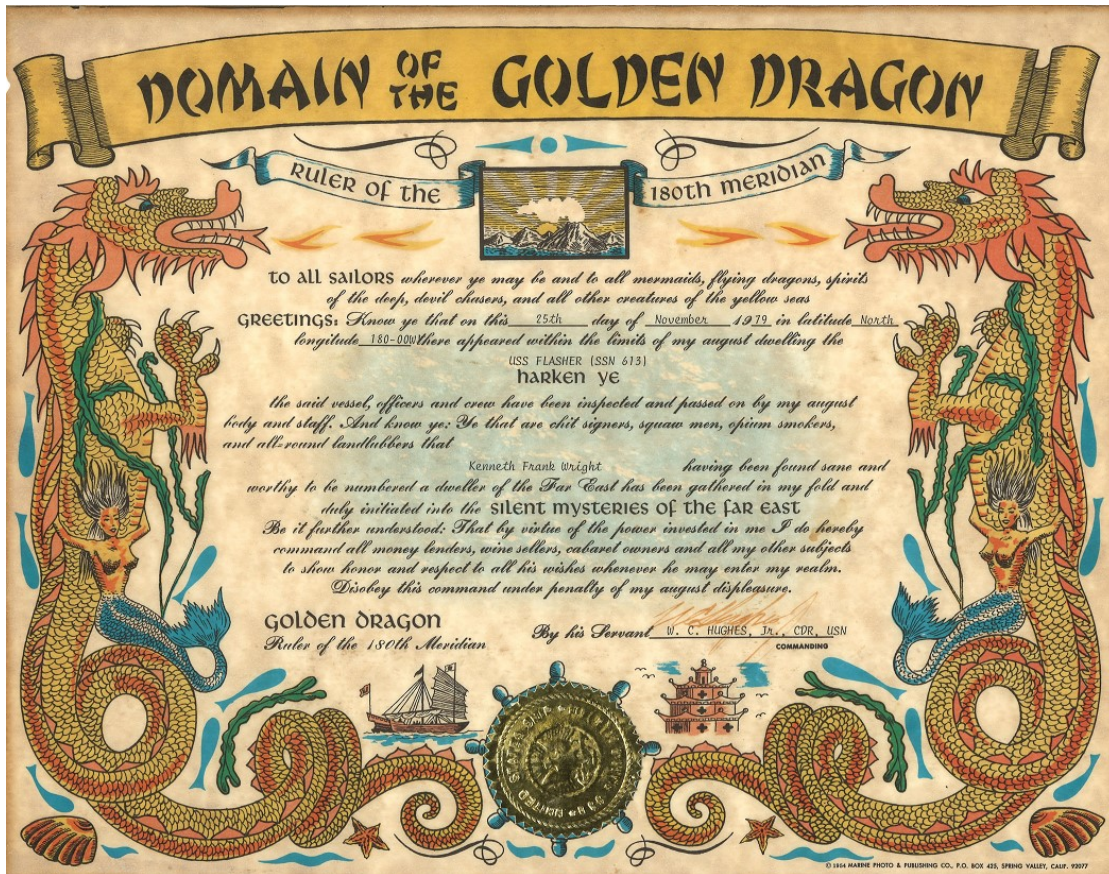 DOMAIN OF THE GOLDEN DRAGON
RULER OF THE 180TH MERIDIAN
TO ALL SAILORS wherever ye may be and to all mermaids, flying dragons, spirits
of the deep, devil chasers, and all other creatures of the yellow seas
GREETINGS: Know ye that on this 25th day of November 1979 in latitude North
longitude 180-00W there appeared within the limits of my august dwelling the
USS FLASHER (SSN 613)
HARKEN YE
the said vessel, officers and crew have been inspected and passed on by my august
body and staff. And know ye: Ye that are chit signers, squaw men, opium smokers,
and all-round landlubbers that
Kenneth Frank Wright having been found sane and
worthy to be numbered a dweller of the Far East has been gathered in my fold and
duly initiated into the SILENT MYSTERIES OF THE FAR EAST
Be it further understood: That by virtue of the power invested in me I do hereby
command all money lenders, wine sellers, cabaret owners and all my other subjects
to show honor and respect to all his wishes whenever he may enter my realm.
Disobey this command under penalty of my august displeasure.
GOLDEN DRAGON
Ruler of the 180th Meridian
By his Servant W. C. HUGHES, Jr., CDR, USN
COMMANDING
© 1954 MARINE PHOTO & PUBLISHING CO., P.O. BOX 425, SPRING VALLEY, CALIF. 92077